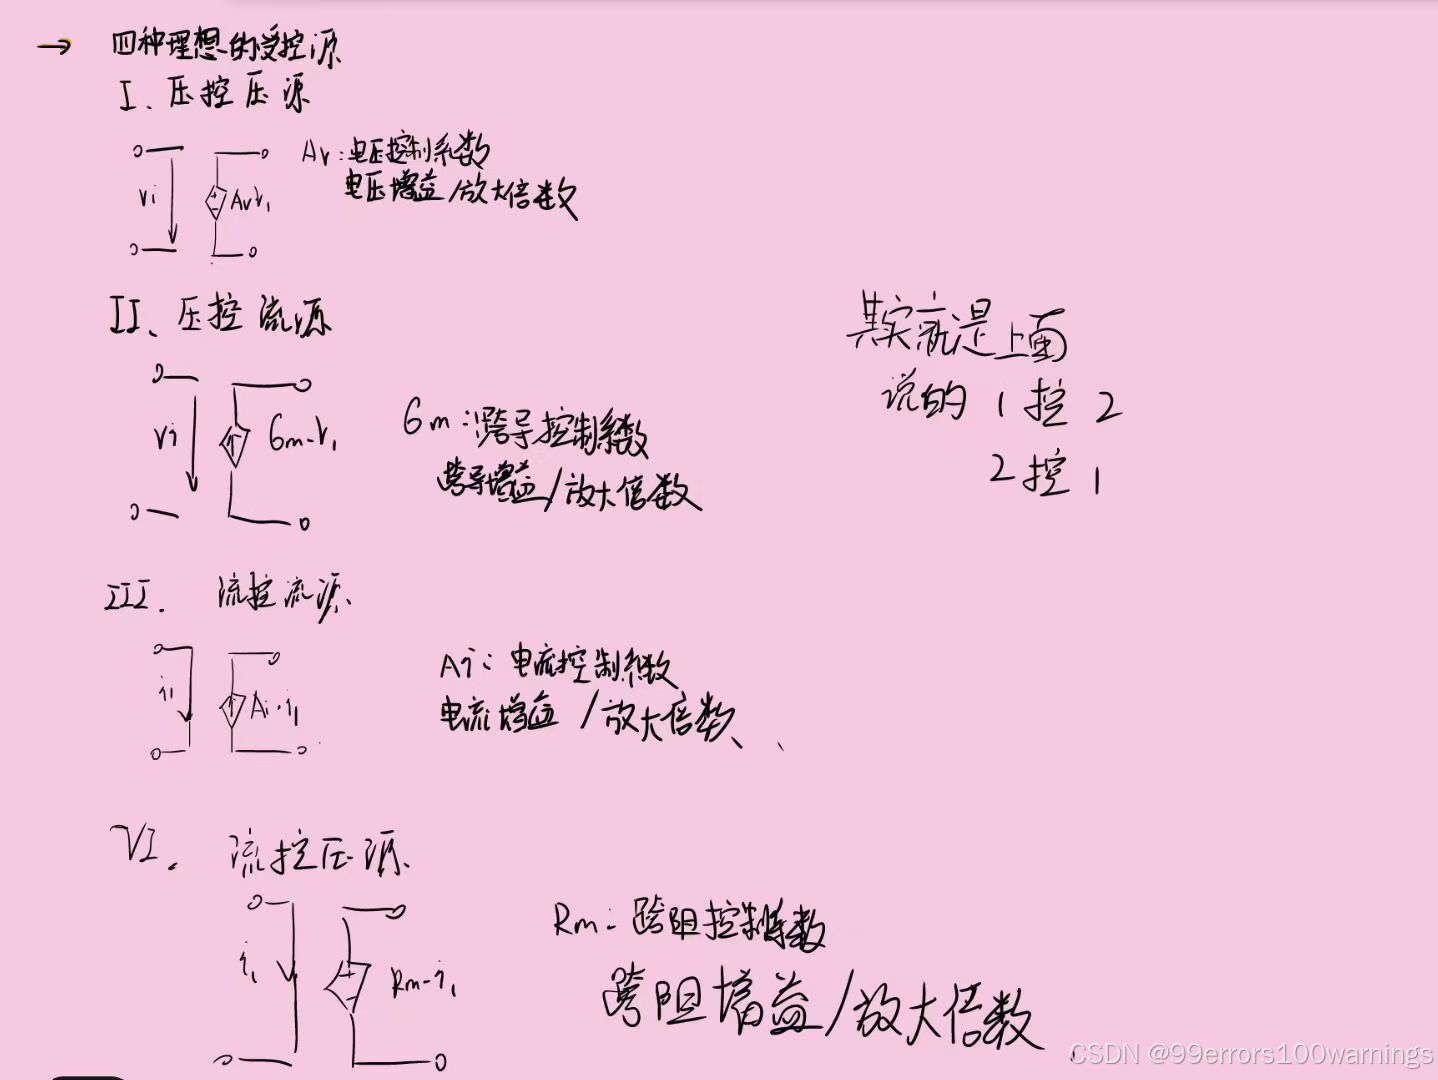 → 四种理想的受控源
I、压控压源
Av:电压控制系数
电压增益/放大倍数
vi
Avv1
II、压控流源
vi
Gm·v1
Gm:跨导控制系数
跨导增益/放大倍数
其实就是上面
说的 1控2
2控1
III. 流控流源
i1
Ai·i1
Ai:电流控制系数
电流增益/放大倍数、
VI. 流控压源
i1
Rm·i1
Rm:跨阻控制系数
跨阻增益/放大倍数
CSDN @99errors100warnings